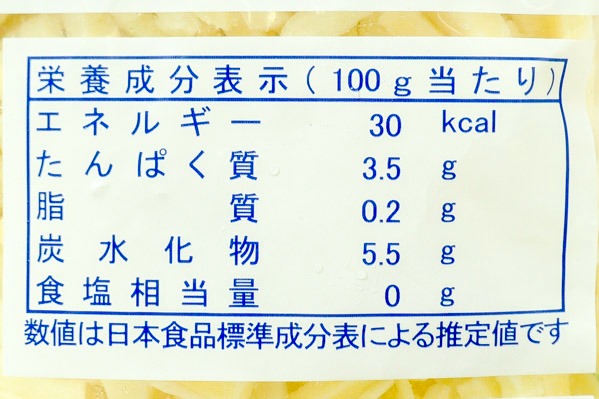 栄養成分表示(100g当たり)
エネルギー 30 kcal
たんぱく質 3.5 g
脂質 0.2 g
炭水化物 5.5 g
食塩相当量 0 g
数値は日本食品標準成分表による推定値です